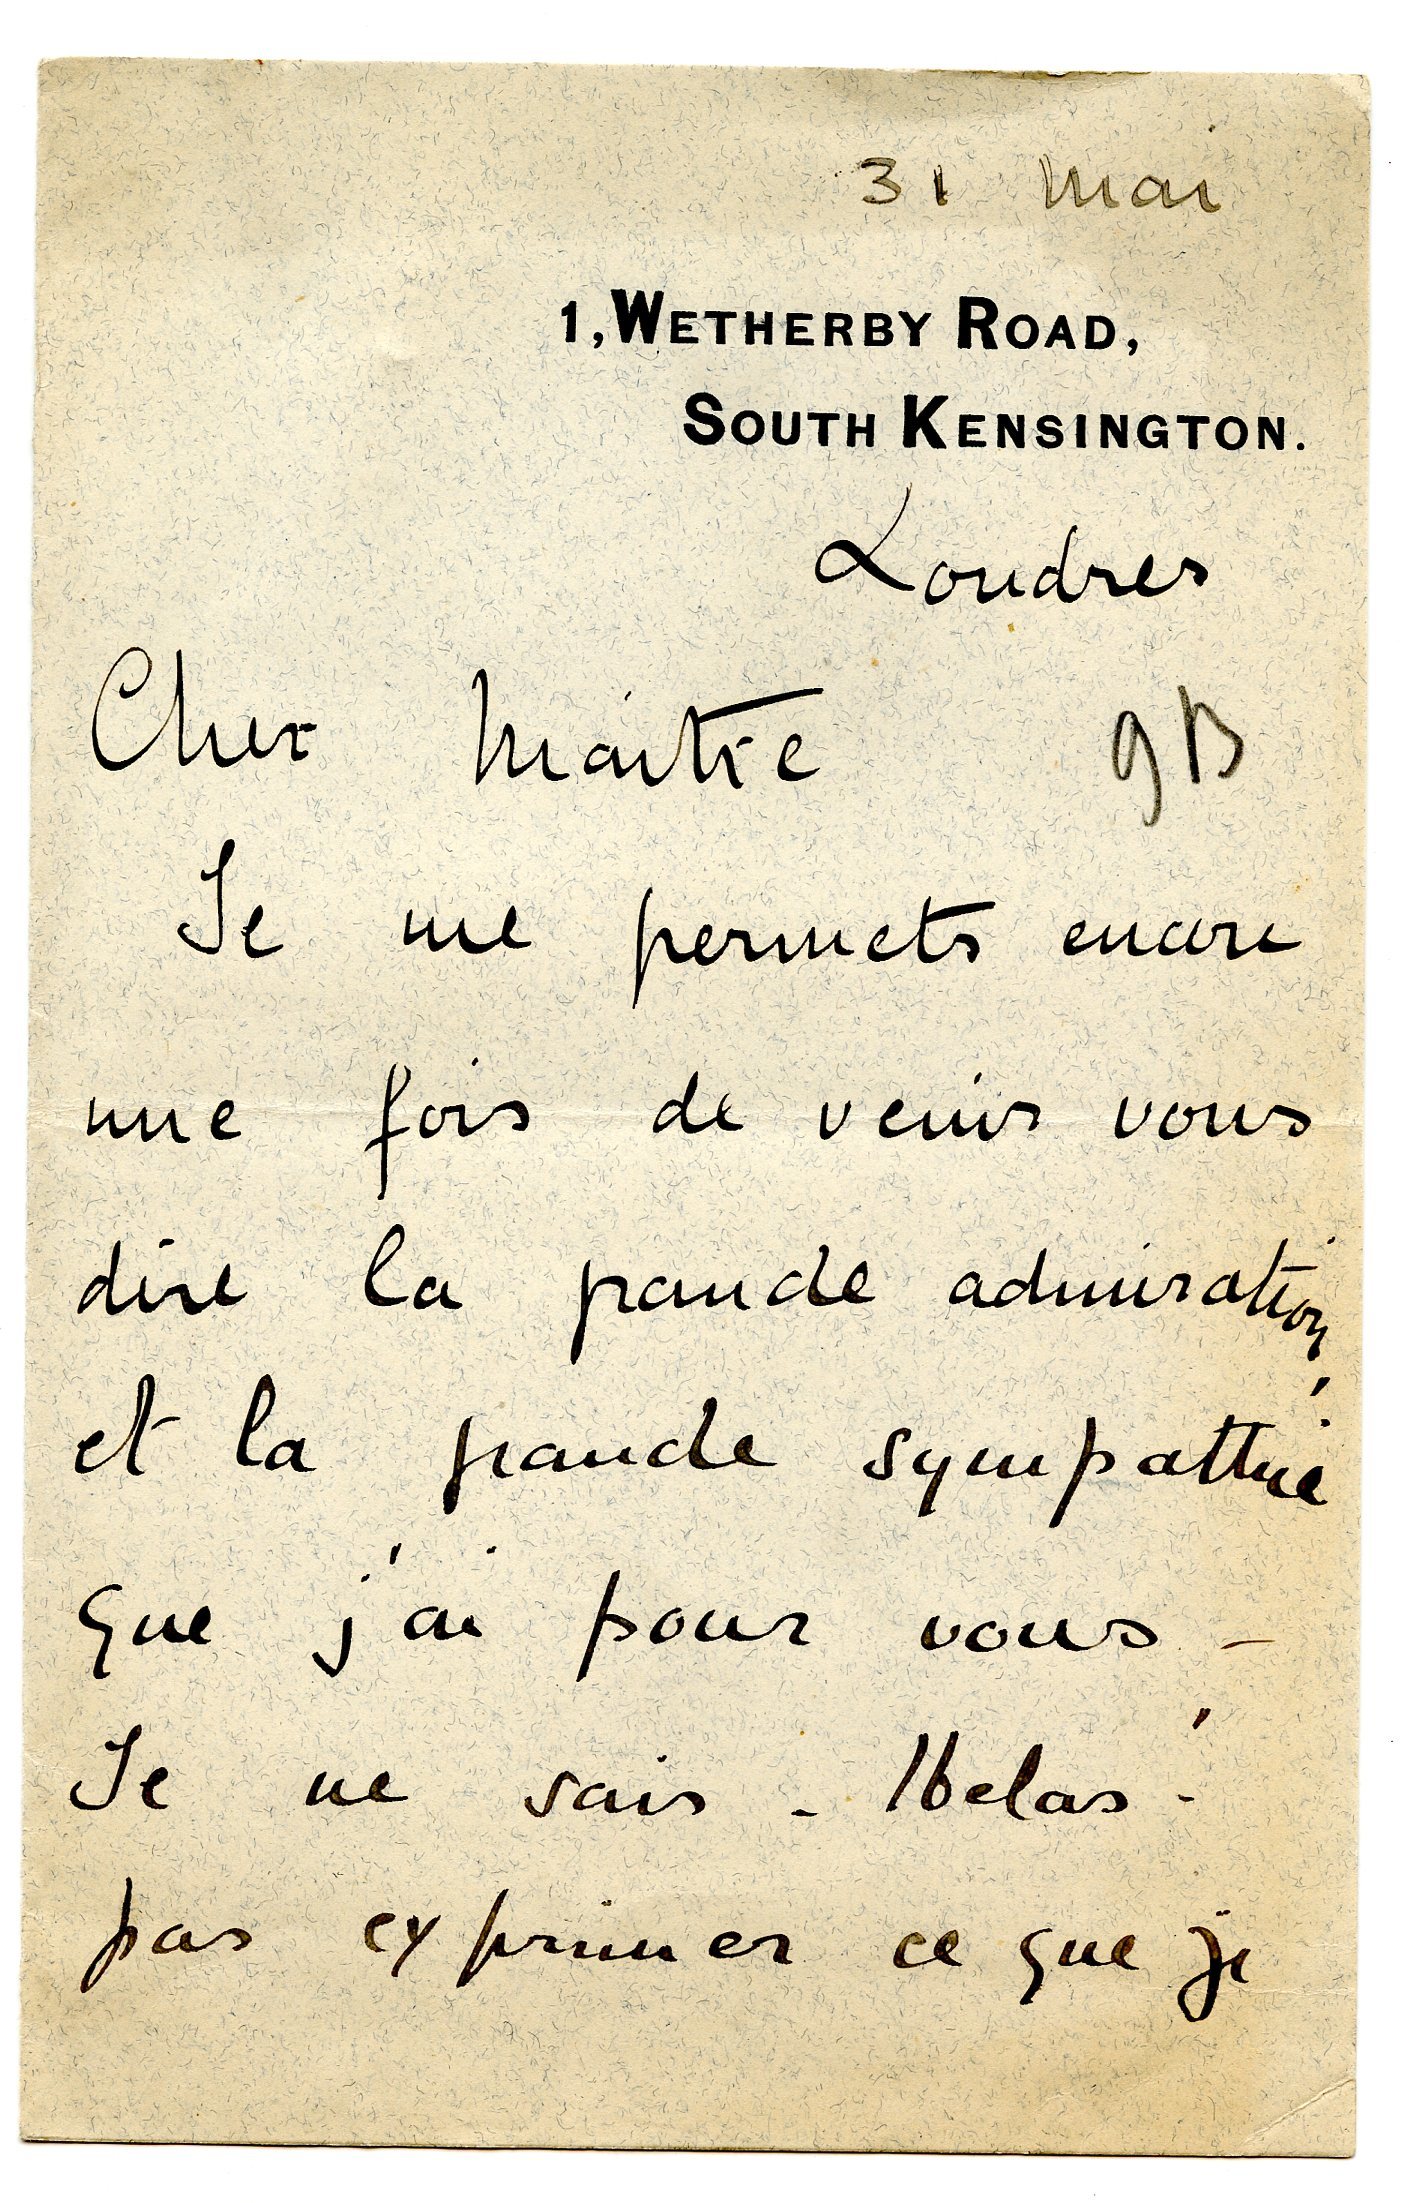 31 Mai
1, WETHERBY ROAD,
SOUTH KENSINGTON.
Londres
Cher Maitre
Je me permets encore
une fois de venir vous
dire la grande admiration,
et la grande sympathie
que j'ai pour vous –
Je ne sais – Hélas –
pas exprimer ce que je